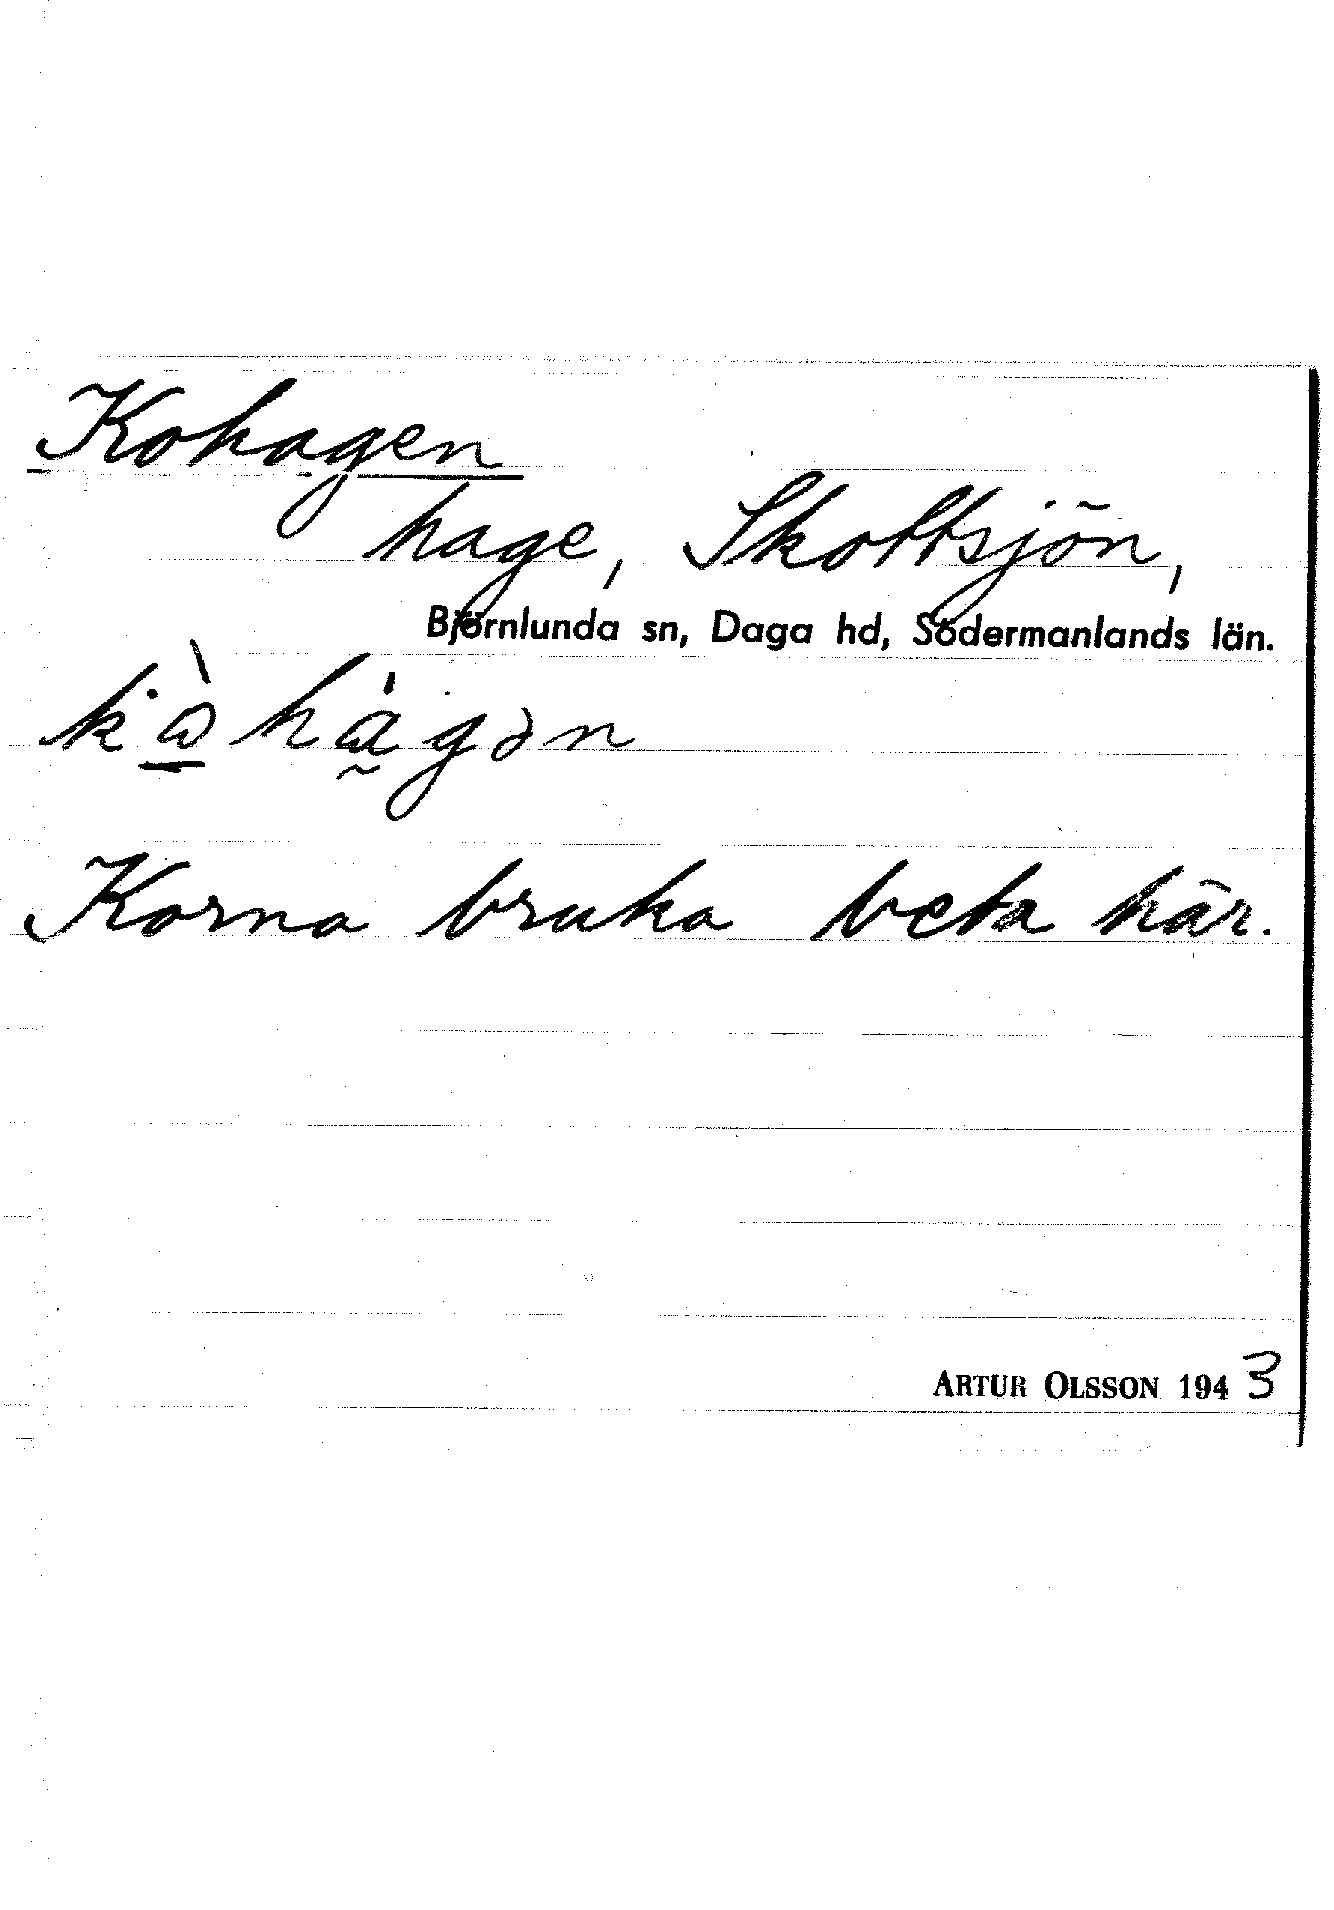 Kohagen
hage, Skottsjön,
Björnlunda sn, Daga hd, Södermanlands län.
Korna bruka beta här.
ARTUR OLSSON 1943